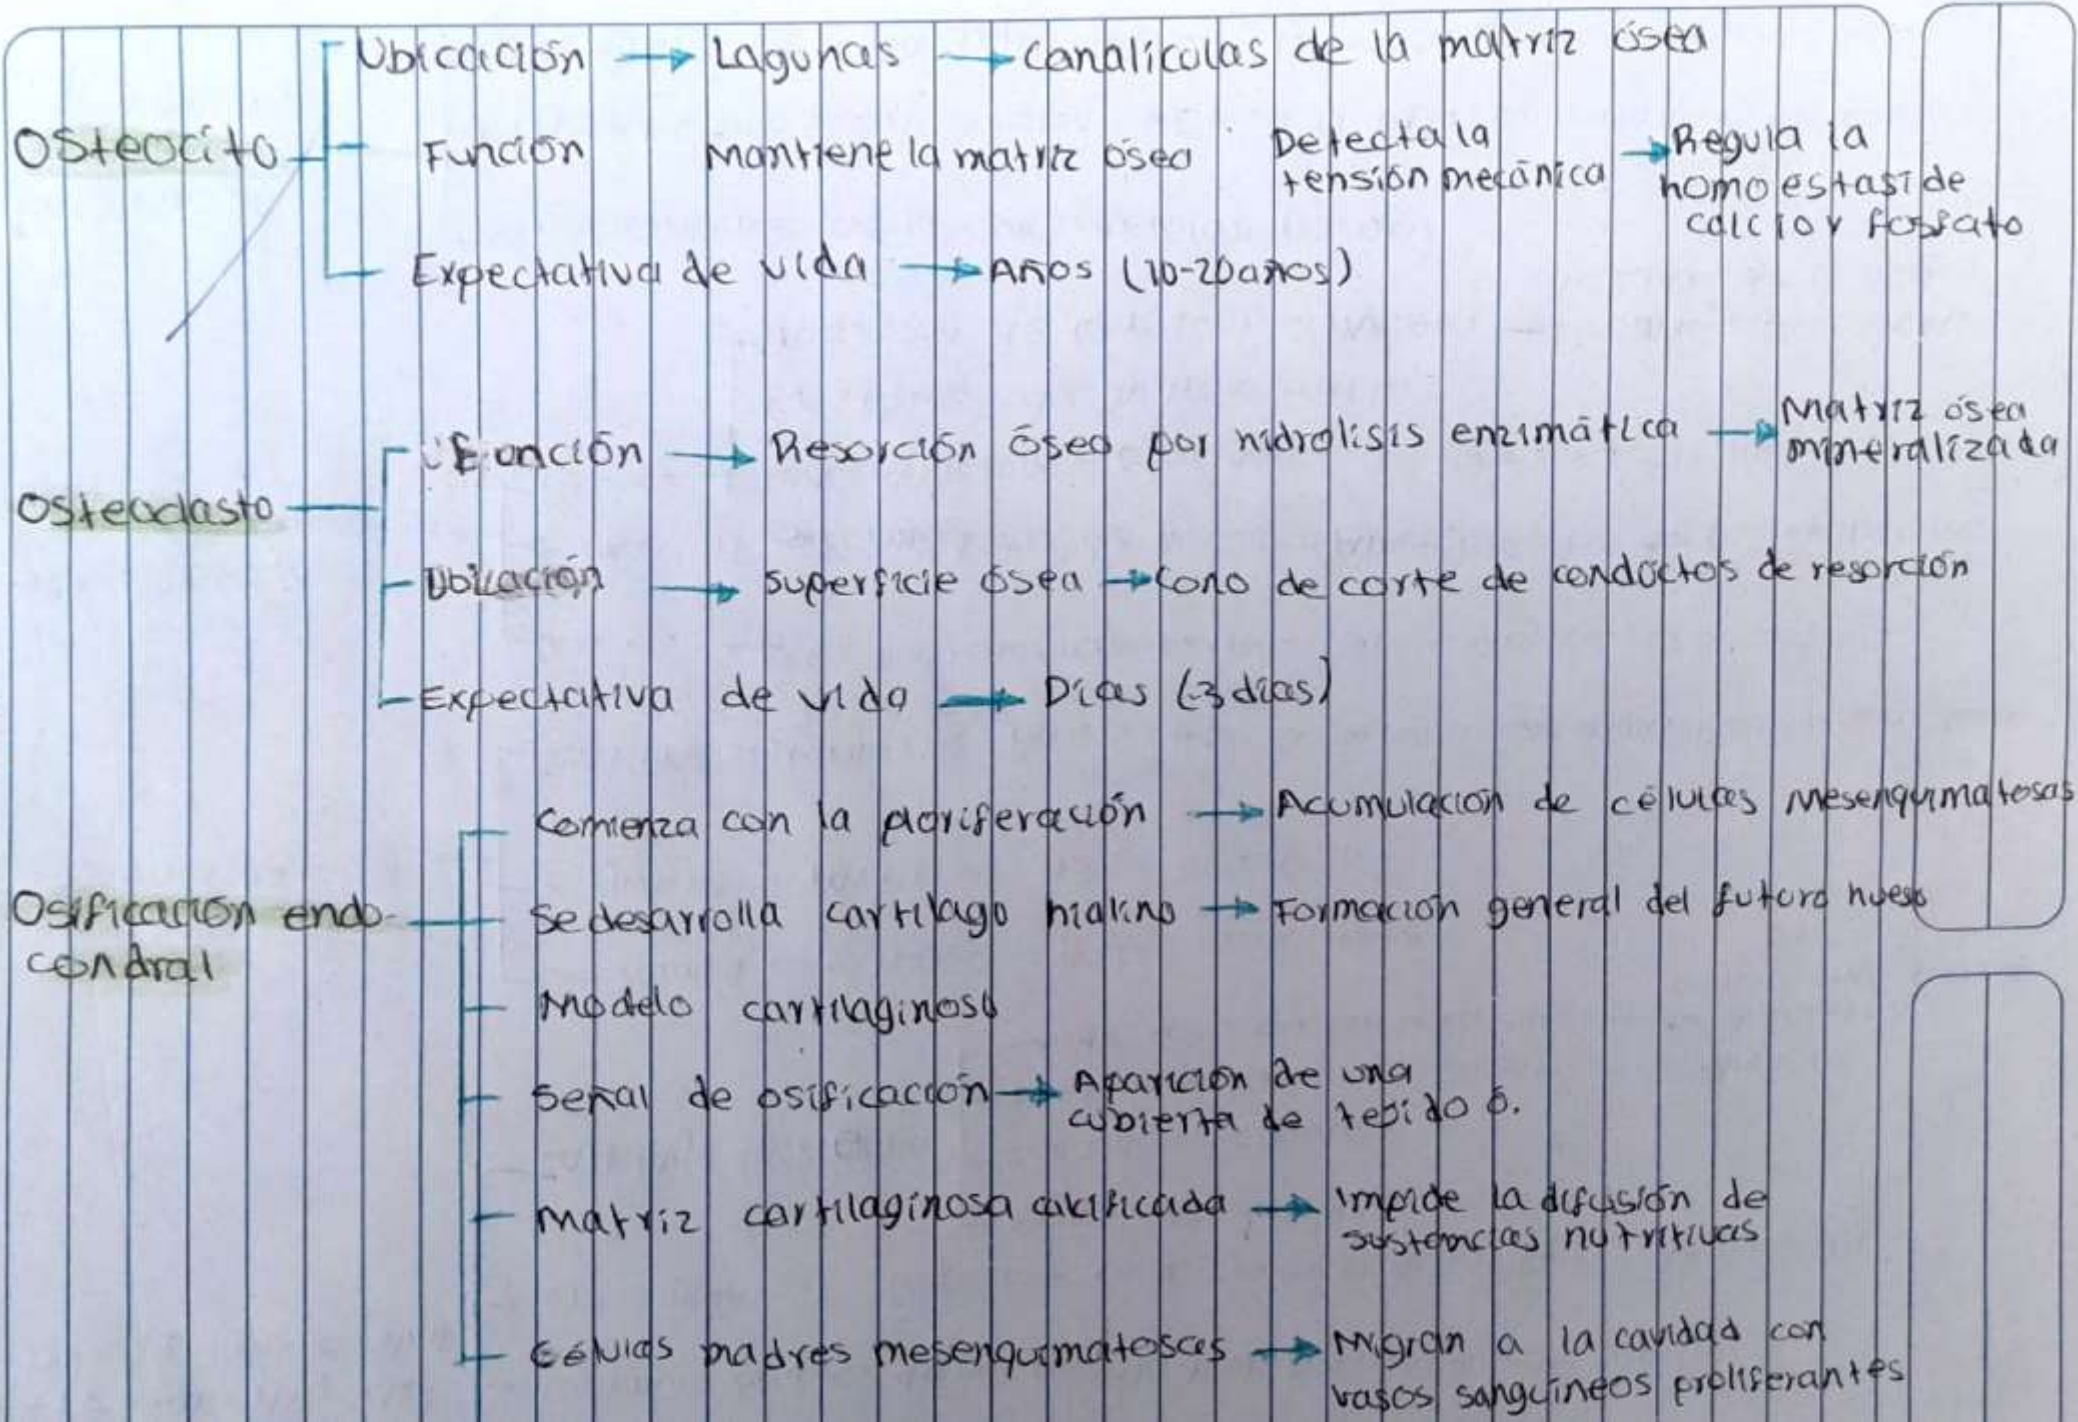 Ubicación → Lagunas → canalículas de la matriz ósea
Osteocito
Función Mantiene la matriz ósea Detecta la tensión mecánica → Regula la homoestasi de calcio y fosfato
Expectativa de vida → Años (10-20 años)
Función → Resorción ósea por hidrolisis enzimática → Matriz ósea mineralizada
Osteoclasto
Ubicación → superficie ósea → cono de corte de conductos de resorción
Expectativa de vida → Días (3 días)
comienza con la proriferación → Acumulación de células mesenquimatosas
Osificación endo
condral
se desarrolla cartílago hialino → Formación general del futuro hueso
Modelo cartilaginoso
señal de osificación → Aparición de una
cubierta de tejido ó.
matriz cartilaginosa calcificada → impide la difusión de
sustancias nutritivas
células madres mesenquimatosas → Migran a la cavidad con
vasos sanguineos proliferantes